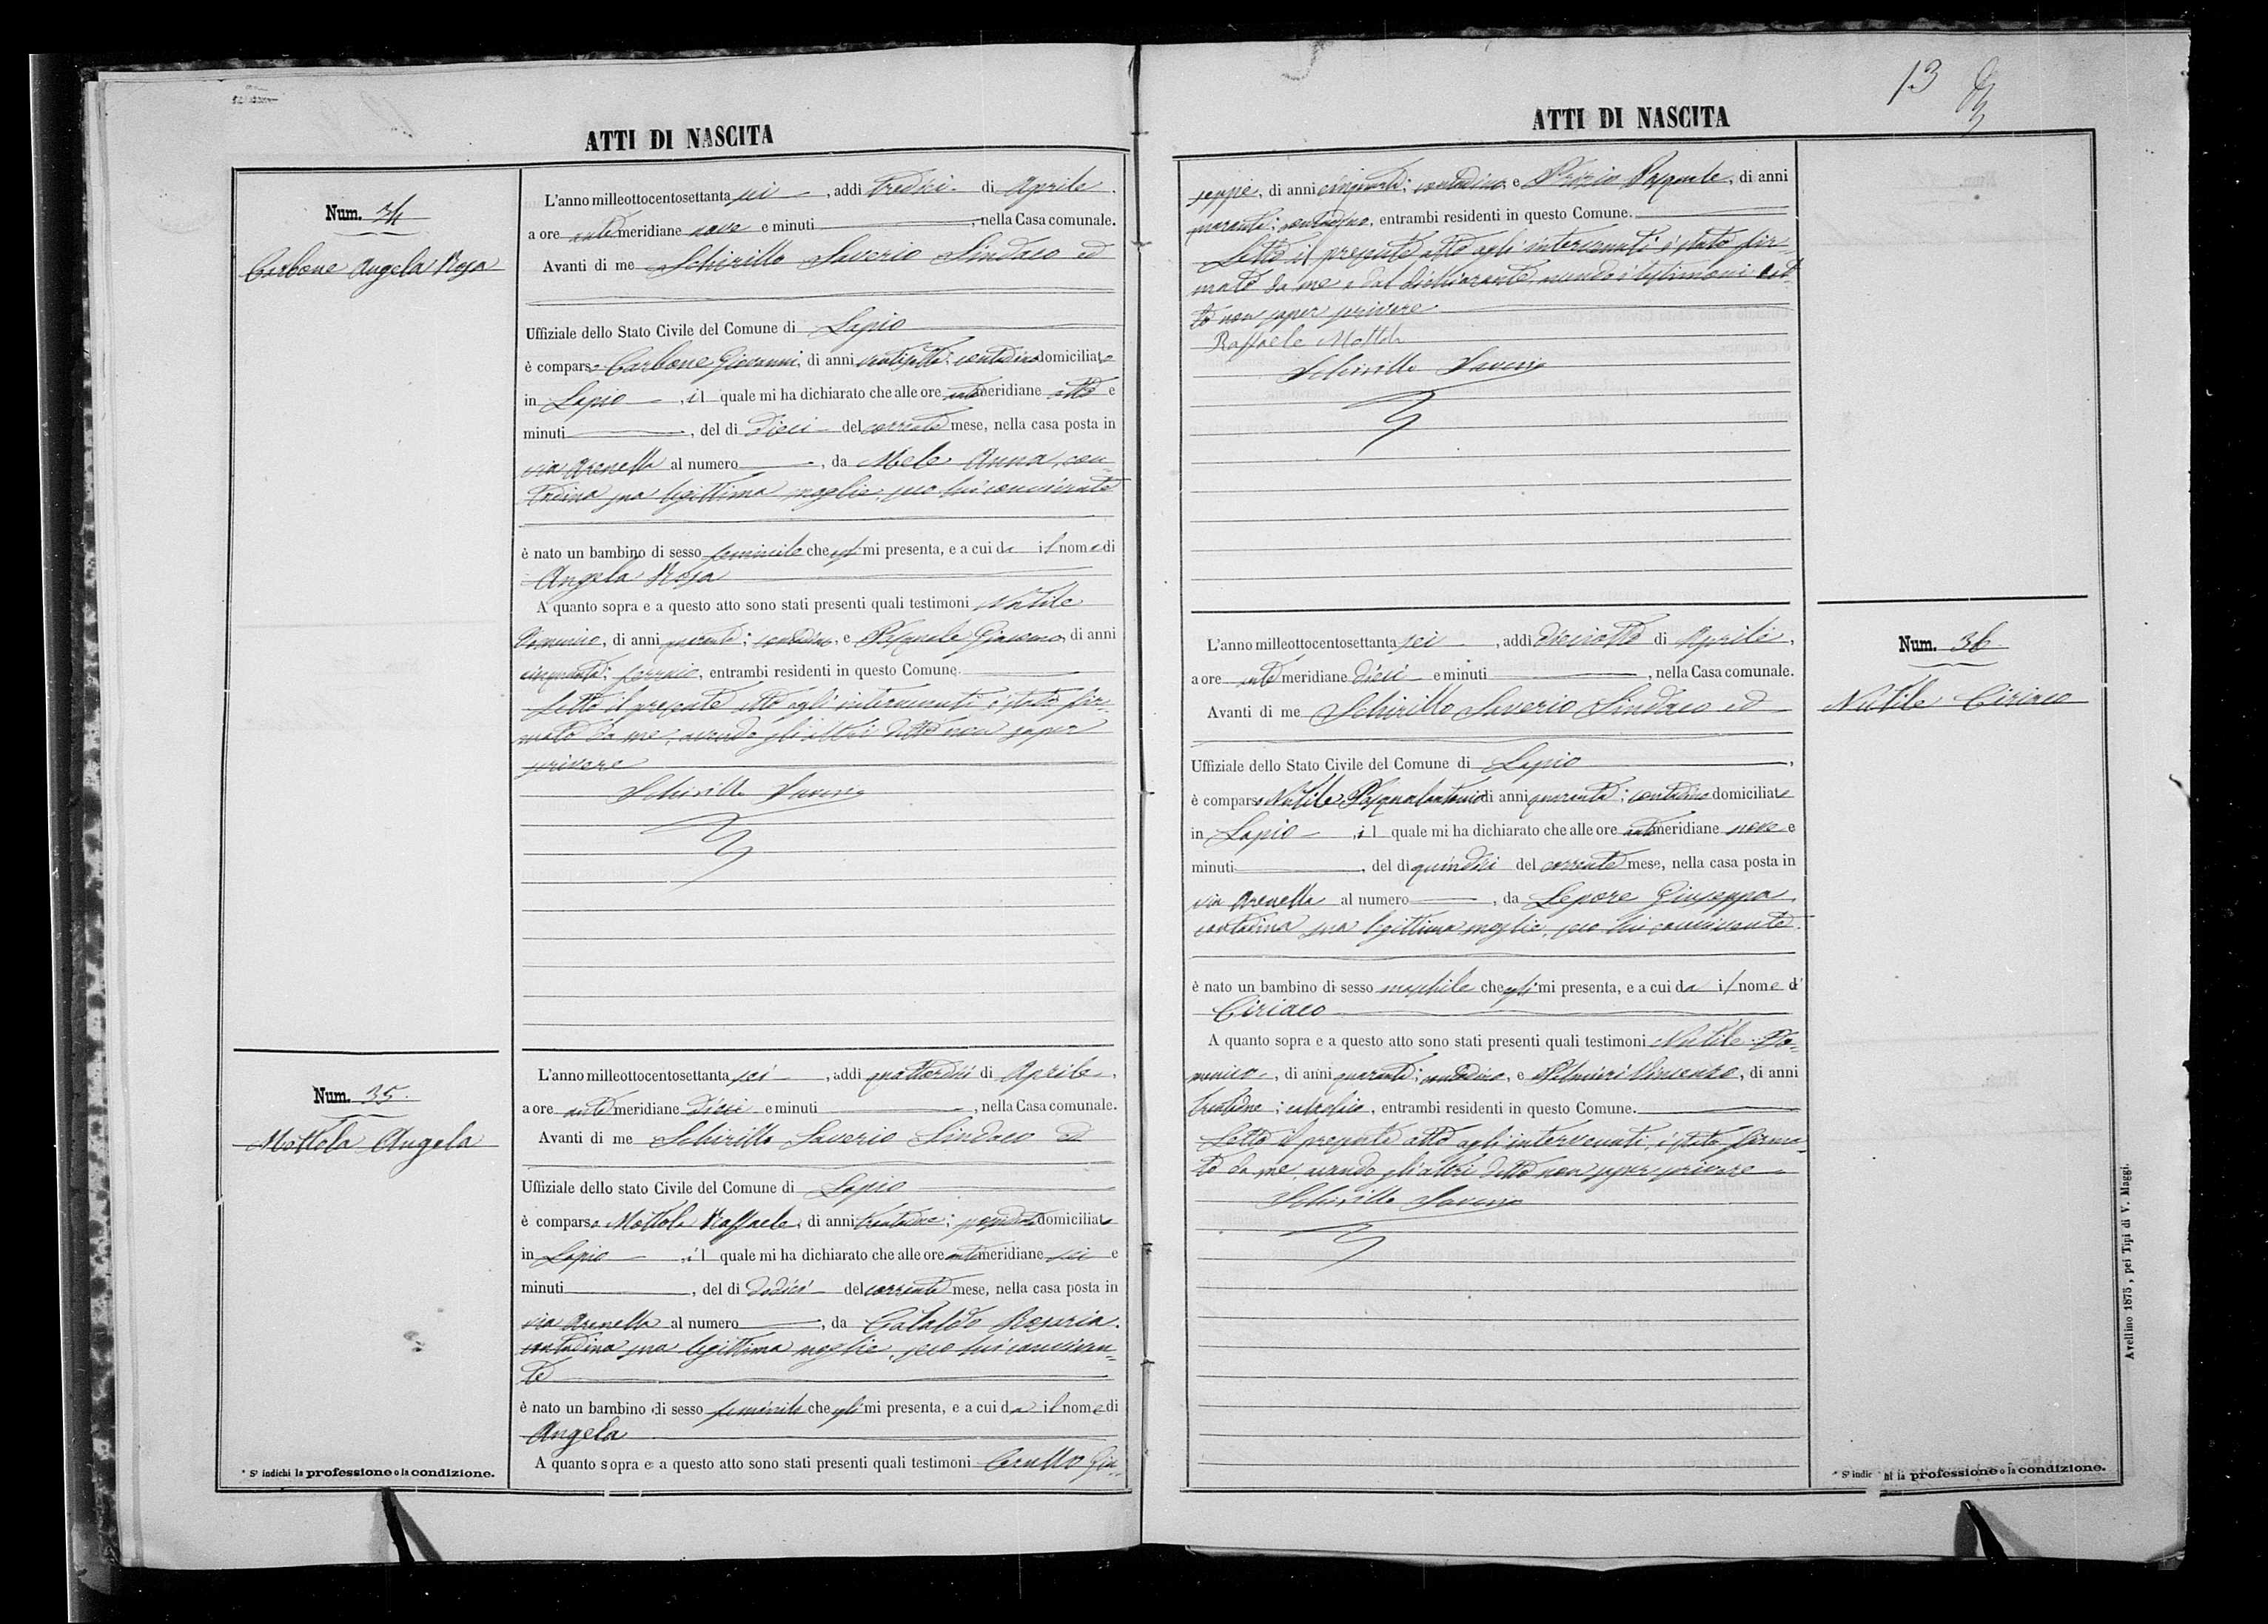 ATTI DI NASCITA
Num. 34
Carbone Angela Rosa
L'anno milleottocentosettanta sei, addi tredici di Aprile,
a ore antemeridiane nove e minuti, nella Casa comunale.
Avanti di me Schirillo Saverio Sindaco ed
Uffiziale dello Stato Civile del Comune di Lapio
è comparso Carbone Giovanni, di anni ventisette; contadino domiciliato
in Lapio, il quale mi ha dichiarato che alle ore antemeridiane otto e
minuti, del di dieci del corrente mese, nella casa posta in
via Arenella al numero, da Mele Anna, con-
tadina sua legittima moglie, seco lui convivente
è nato un bambino di sesso feminile che egli mi presenta, e a cui da il nome di
Angela Rosa
A quanto sopra e a questo atto sono stati presenti quali testimoni Nutile
Domenico, di anni quaranta; contadino, e Pasquale Giacomo, di anni
cinquanta; , entrambi residenti in questo Comune.
Letto il presente atto agli intervenuti è stato fir-
mato da me, avendo gli altri detto non saper
scrivere
Schirillo Saverio
Num. 35
Mottola Angela
L'anno milleottocentosettanta sei, addi quattordici di Aprile,
a ore antemeridiane dieci e minuti, nella Casa comunale.
Avanti di me Schirillo Saverio Sindaco ed
Uffiziale dello stato Civile del Comune di Lapio
è comparso Mottola Raffaele, di anni trentadue; domiciliato
in Lapio, il quale mi ha dichiarato che alle ore antemeridiane sei e
minuti, del di dodici del corrente mese, nella casa posta in
via Arenella al numero, da Cataldo Rosaria,
contadina sua legittima moglie, seco lui conviven-
te
è nato un bambino di sesso feminile che egli mi presenta, e a cui da il nome di
Angela
A quanto sopra e a questo atto sono stati presenti quali testimoni Cerullo Giu-
* S' indichi la professione o la condizione.
13
ATTI DI NASCITA
seppe, di anni cinquanta; contadino, e Pasquale, di anni
quaranta; contadino, entrambi residenti in questo Comune.
Letto il presente atto agli intervenuti è stato fir-
mato da me e dal dichiarante, avendo i testimoni det-
to non saper scrivere
Raffaele Mottola
Schirillo Saverio
Num. 36
Nutile Ciriaco
L'anno milleottocentosettanta sei, addi dieciotto di Aprile,
a ore antemeridiane dieci e minuti, nella Casa comunale.
Avanti di me Schirillo Saverio Sindaco ed
Uffiziale dello Stato Civile del Comune di Lapio,
è comparso Nutile Pasqualantonio di anni quaranta; contadino domiciliato
in Lapio, il quale mi ha dichiarato che alle ore antemeridiane nove e
minuti, del di quindici del corrente mese, nella casa posta in
via Arenella al numero, da Lepore Giuseppa,
contadina sua legittima moglie, seco lui convivente
è nato un bambino di sesso maschile che egli mi presenta, e a cui da il nome di
Ciriaco
A quanto sopra e a questo atto sono stati presenti quali testimoni Nutile Do-
menico, di anni quaranta; contadino, e Palmieri Vincenzo, di anni
trentadue; , entrambi residenti in questo Comune.
Letto il presente atto agli intervenuti, è stato firma-
to da me, avendo gli altri detto non saper scrivere
Schirillo Saverio
* S' indichi la professione o la condizione.
Avellino 1875, pei Tipi di V. Maggi.